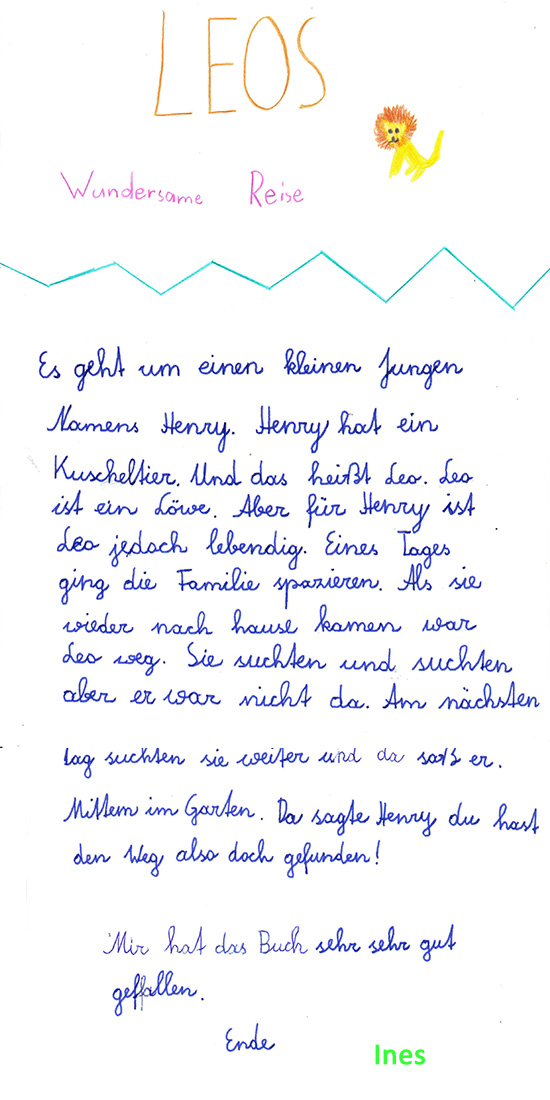 LEOS
Wundersame Reise
Es geht um einen kleinen Jungen
Namens Henry. Henry hat ein
Kuscheltier. Und das heißt Leo. Leo
ist ein Löwe. Aber für Henry ist
Leo jedoch lebendig. Eines Tages
ging die Familie spazieren. Als sie
wieder nach hause kamen war
Leo weg. Sie suchten und suchten
aber er war nicht da. Am nächsten
tag suchten sie weiter und da saß er.
Mittem im Garten. Da sagte Henry du hast
den Weg also doch gefunden!
Mir hat das Buch sehr sehr gut
gefallen.
Ende
Ines